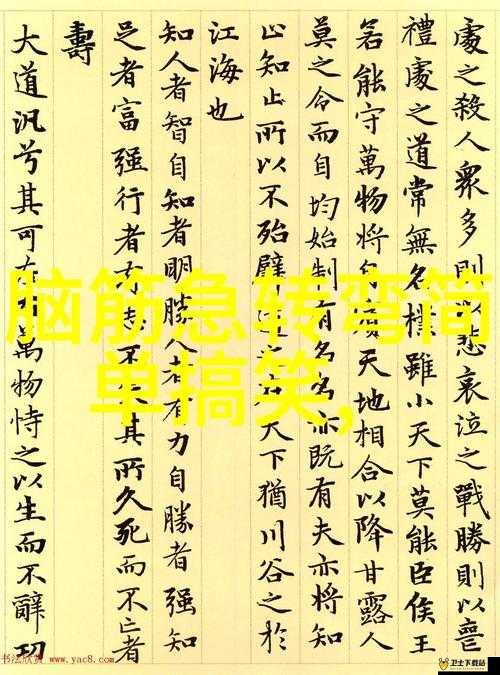 處之殺人眾多則以悲哀泣之戰勝則以喪
禮處之道常無名樸雖小天下莫能臣侯王
若能守萬物將自賓天地相合以降甘露人
莫之令而自均始制有名名亦既有夫亦將知
止知止所以不殆譬道之在天下猶川谷之於
江海也
知人者智自知者明勝人者有力自勝者強知
足者富強行者有志不其所久死而不亡者
壽
大道汎兮其可左右萬物恃之以生而不辭功
脑筋急转弯简
单搞笑,
书法欣赏 www.yac8.com
卫士下载站